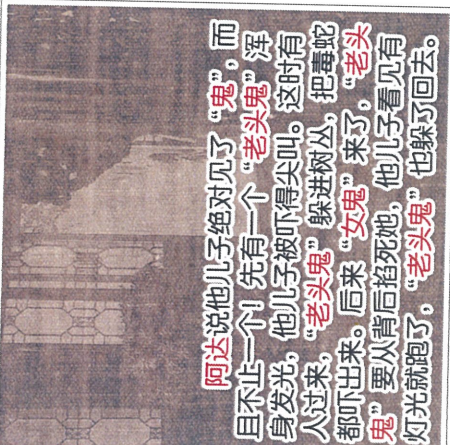 阿达说他儿子绝对见了“鬼”，而
且不止一个！先有一个“老头鬼”浑
身发光，他儿子被吓得尖叫。这时有
人过来，“老头鬼”躲进树丛，把毒蛇
都吓出来。后来“女鬼”来了，“老头
鬼”要从背后掐死她，他儿子看见有
灯光就跑了，“老头鬼”也躲了回去。